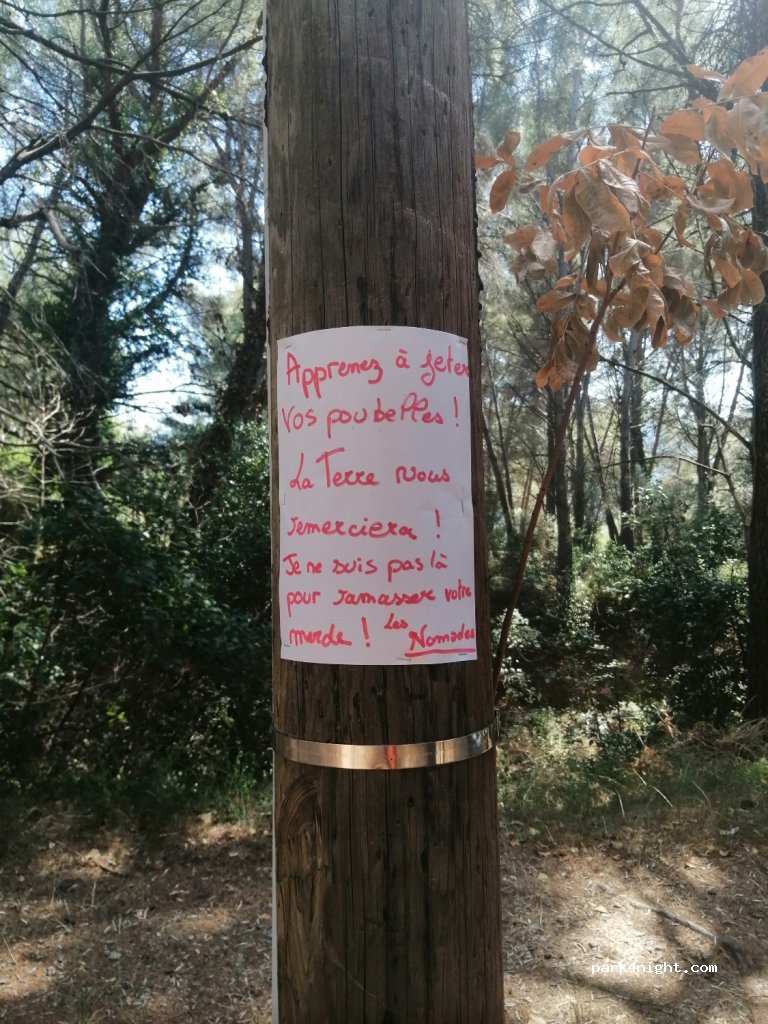 Apprenez à jeter
Vos poubelles !
La Terre vous
remerciera !
Je ne suis pas là
pour ramasser votre
merde ! Les Nomades
park4night.com